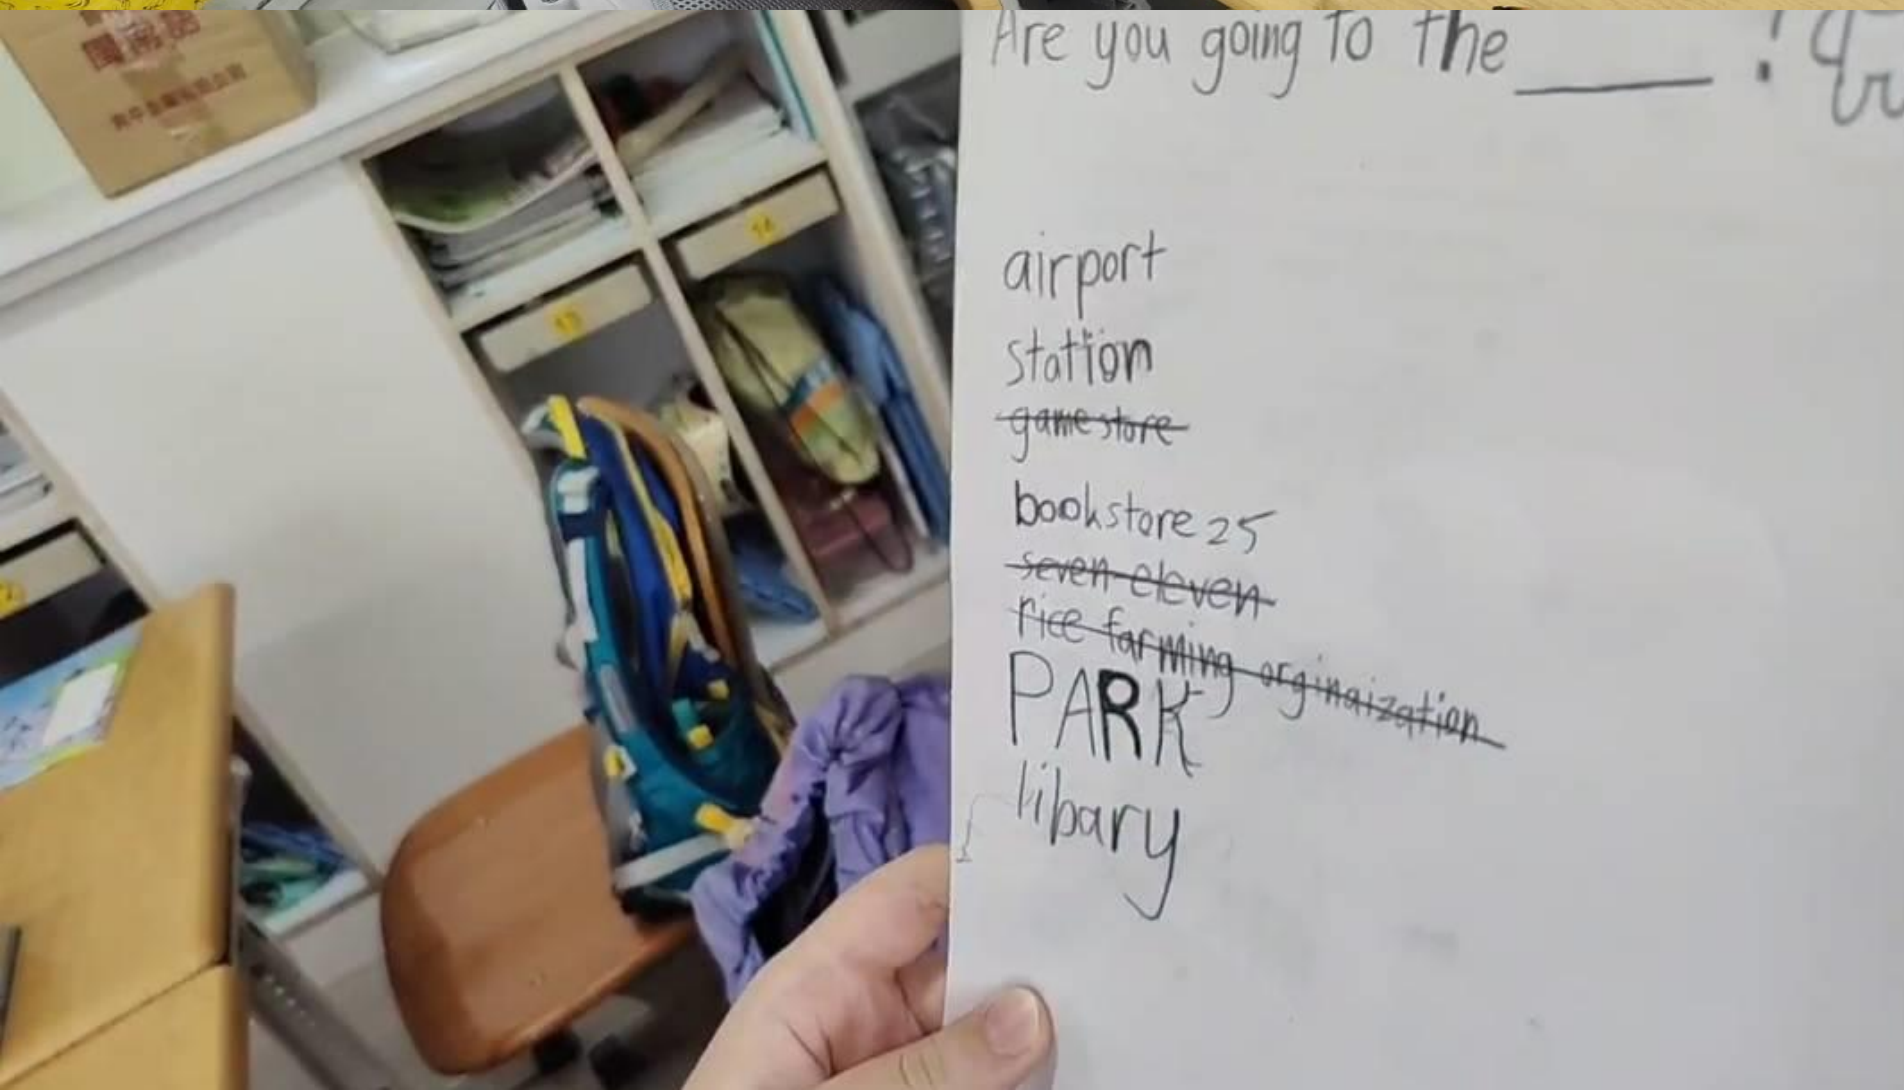 Are you going to the ____ ?
airport
station
gamestore
bookstore 25
seven eleven
rice farming orginaization
PARK
libary
13
14